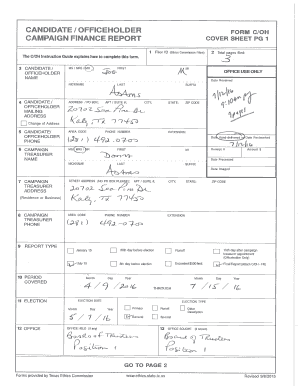 CANDIDATE / OFFICEHOLDER
CAMPAIGN FINANCE REPORT
FORM C/OH
COVER SHEET PG 1
The C/OH Instruction Guide explains how to complete this form.
1 Filer ID (Ethics Commission Filers)
2 Total pages filed:
3
3 CANDIDATE / OFFICEHOLDER NAME
MS / MRS / MR
FIRST
MI
Joe M
NICKNAME
LAST
SUFFIX
Adams
OFFICE USE ONLY
Date Received
4 CANDIDATE / OFFICEHOLDER MAILING ADDRESS
Change of Address
ADDRESS / PO BOX; APT / SUITE #; CITY; STATE; ZIP CODE
20702 Sea Pine Dr
Katy, TX 77450
5 CANDIDATE / OFFICEHOLDER PHONE
AREA CODE
PHONE NUMBER
EXTENSION
(281) 492-0700
Date Hand-delivered or Date Postmarked
6 CAMPAIGN TREASURER NAME
MS / MRS / MR
FIRST
MI
Donna
NICKNAME
LAST
SUFFIX
Adams
Receipt #
Amount $
Date Processed
Date Imaged
7 CAMPAIGN TREASURER ADDRESS
(Residence or Business)
STREET ADDRESS (NO PO BOX PLEASE); APT / SUITE #; CITY; STATE; ZIP CODE
20702 Sea Pine Dr
Katy, TX 77450
8 CAMPAIGN TREASURER PHONE
AREA CODE
PHONE NUMBER
EXTENSION
(281) 492-0700
9 REPORT TYPE
January 15
30th day before election
Runoff
15th day after campaign treasurer appointment (Officeholder Only)
July 15
8th day before election
Exceeded $500 limit
Final Report (Attach C/OH - FR)
10 PERIOD COVERED
Month Day Year
4 / 9 / 2016
THROUGH
Month Day Year
7 / 15 / 16
11 ELECTION
ELECTION DATE
Month Day Year
5 / 7 / 16
ELECTION TYPE
Primary
Runoff
Other Description
General
Special
12 OFFICE
OFFICE HELD (if any)
Board of Trustees
Position 1
13 OFFICE SOUGHT (if known)
Board of Trustees
Position 1
GO TO PAGE 2
Forms provided by Texas Ethics Commission
www.ethics.state.tx.us
Revised 9/8/2015